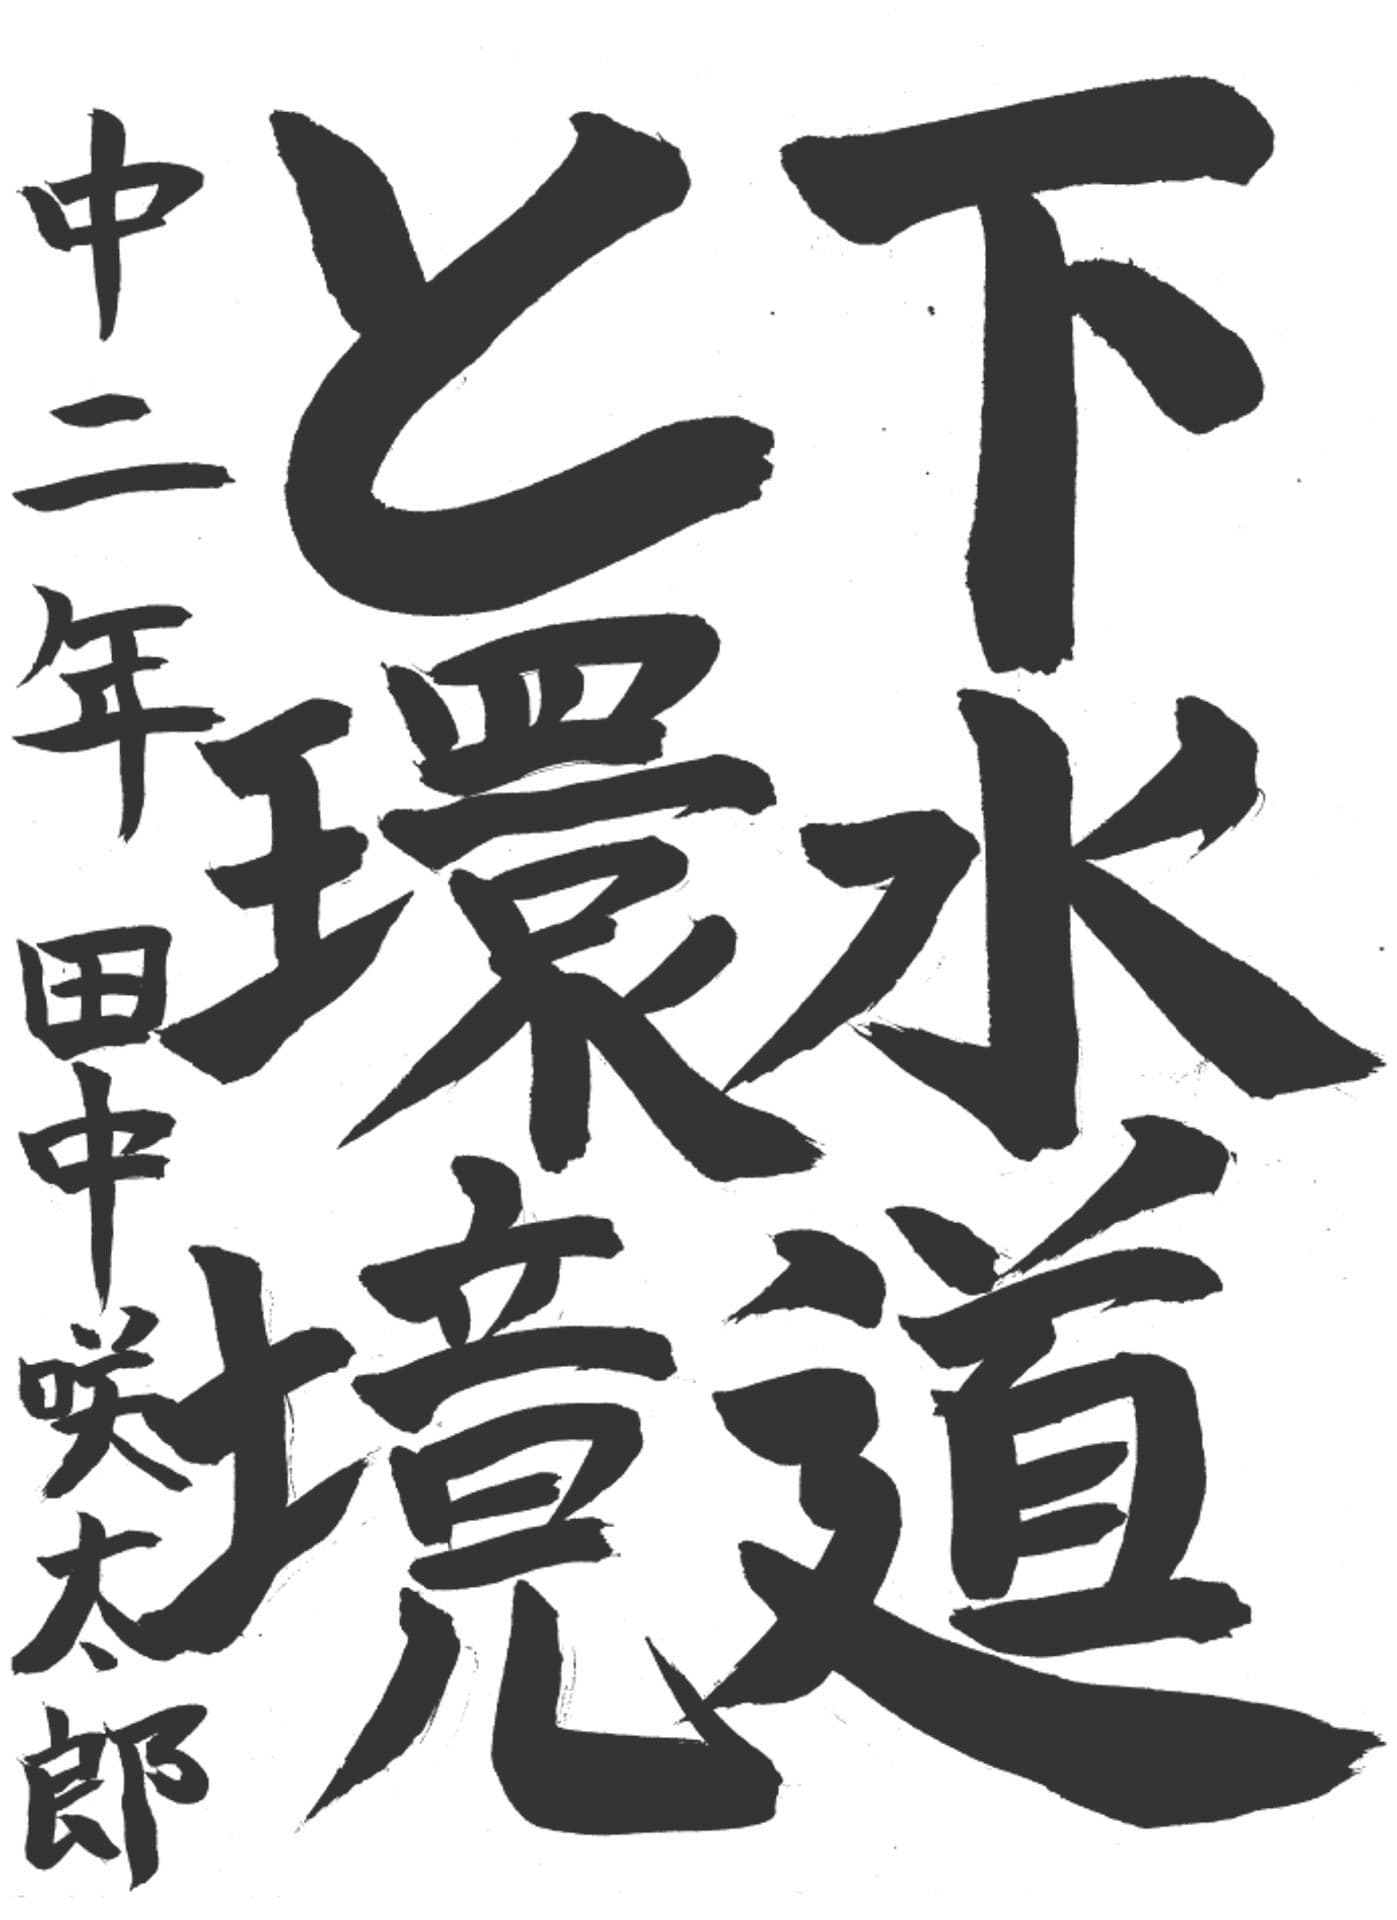 下水道
と環境
中二年 田中咲太郎